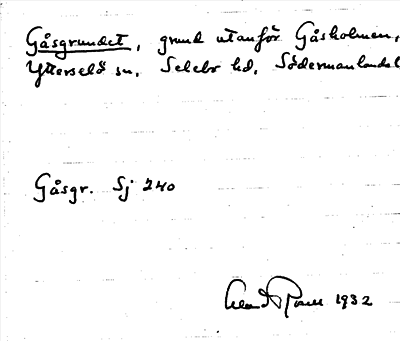 Gåsgrundet, grund utanför Gåsholmen,
Ytterselö sn. Selebo hd. Södermanland
Gåsgr. Sj 240
1932